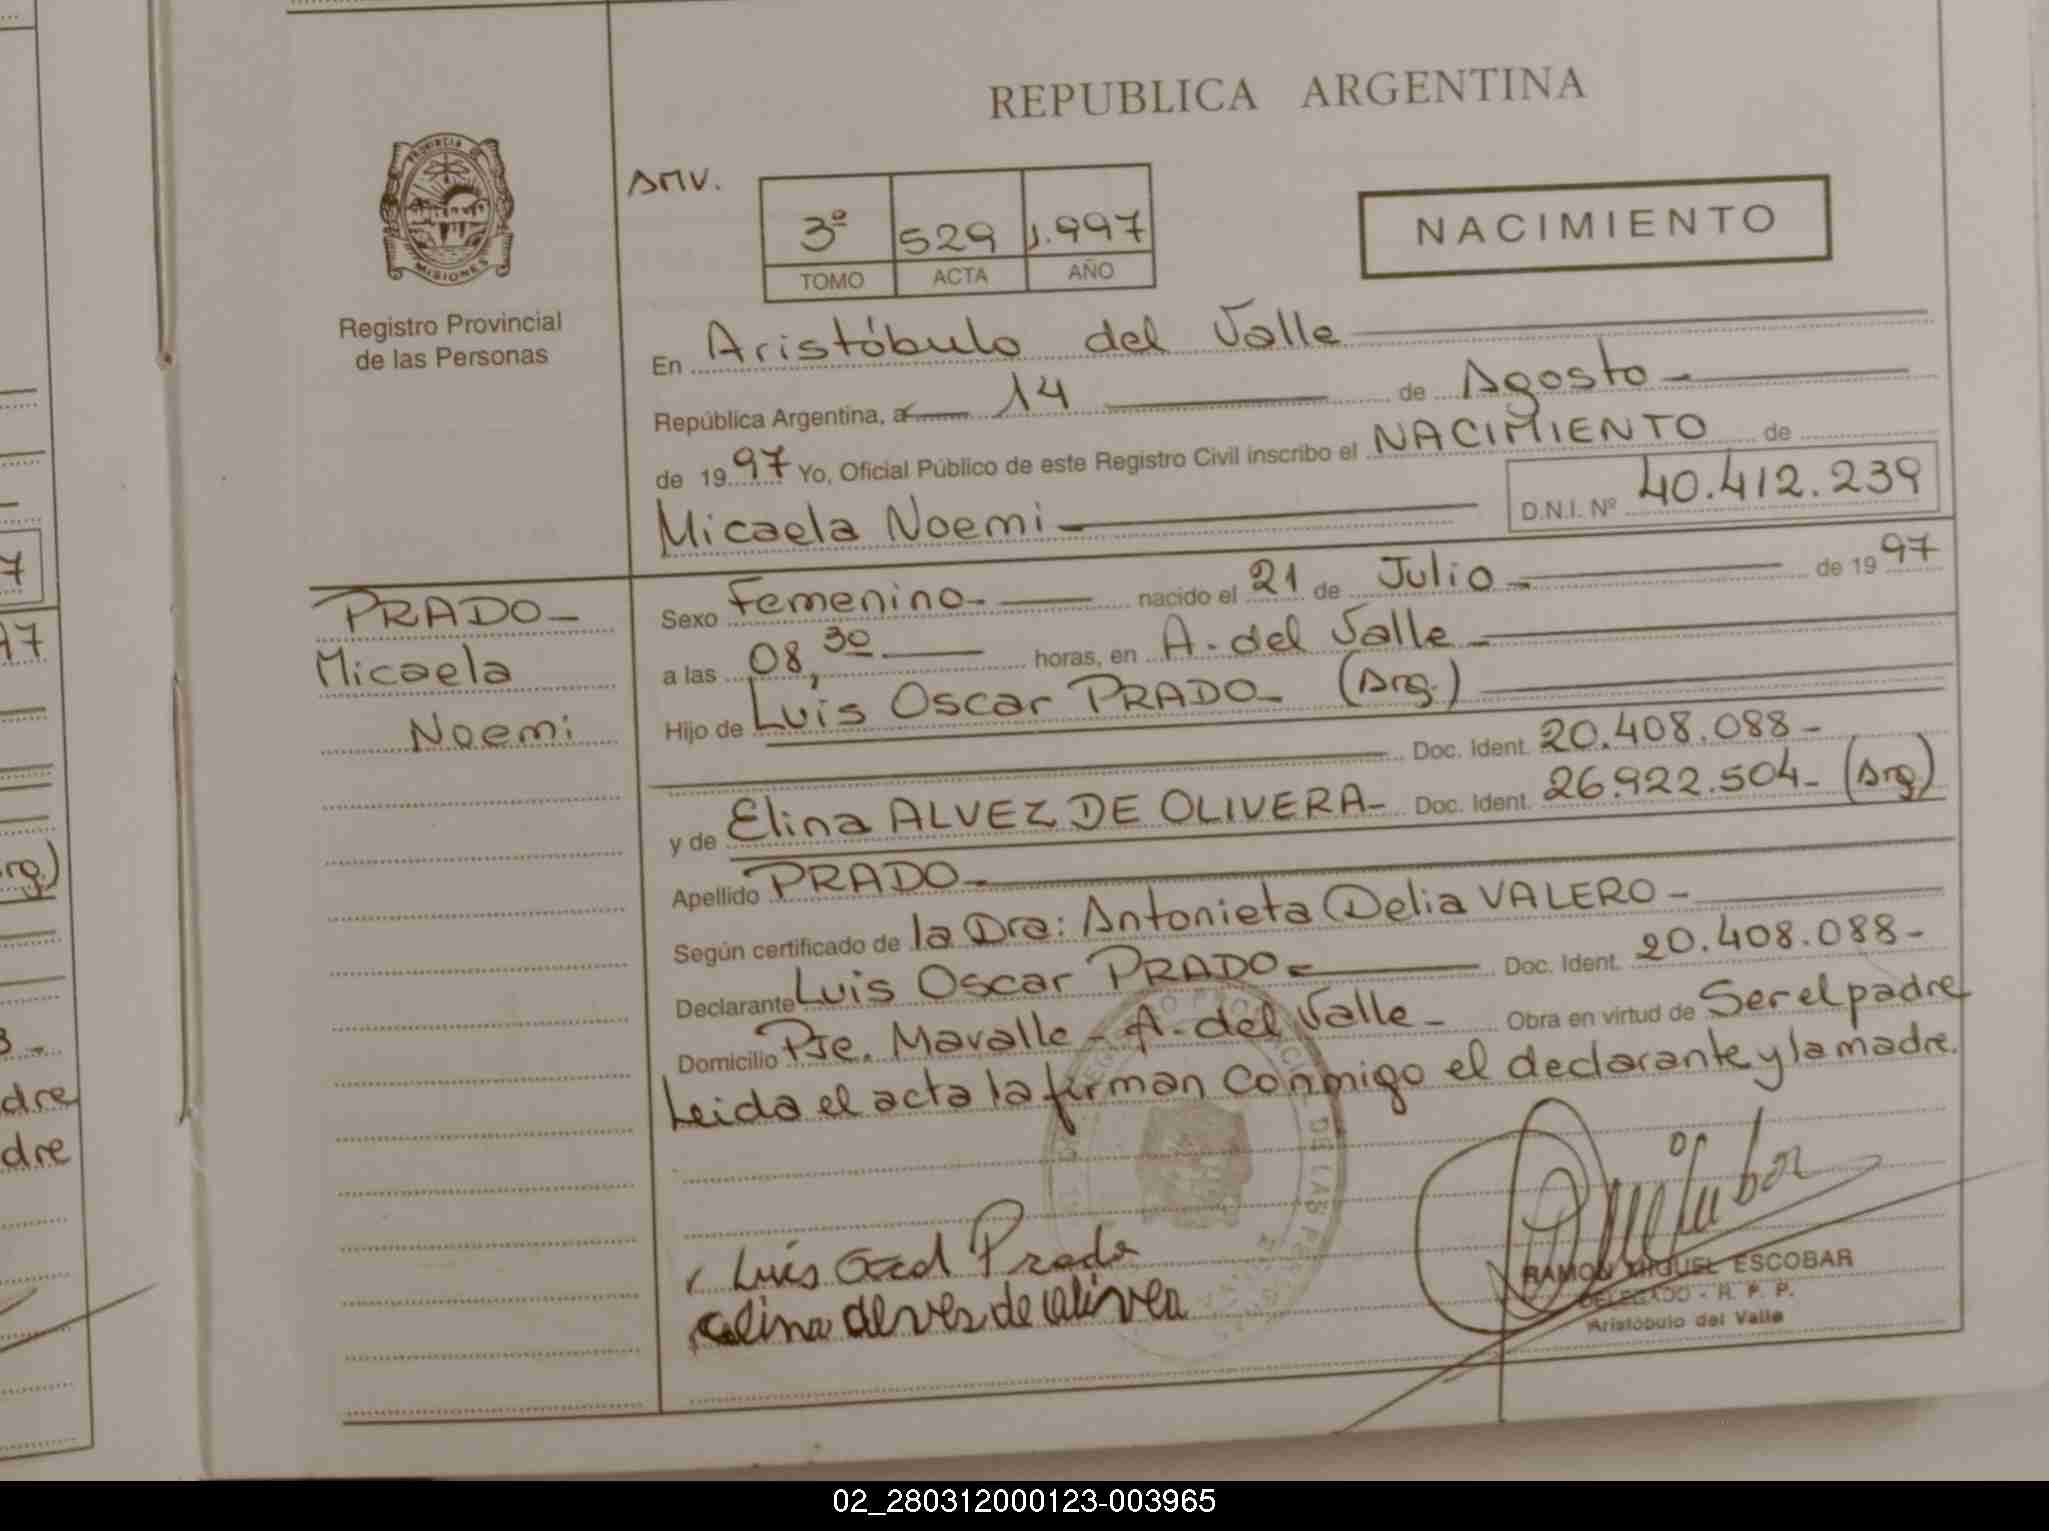 REPUBLICA ARGENTINA
PROVINCIA
MISIONES
Registro Provincial
de las Personas
AMV.
3º 529 1.997
TOMO ACTA AÑO
NACIMIENTO
En Aristóbulo del Valle
República Argentina, a 14 de Agosto
de 1997 Yo, Oficial Público de este Registro Civil inscribo el NACIMIENTO de
Micaela Noemi D.N.I. Nº 40.412.239
PRADO
Micaela
Noemi
Sexo Femenino nacido el 21 de Julio de 1997
a las 08,30 horas, en A. del Valle
Hijo de Luis Oscar PRADO (Arg.)
Doc. Ident. 20.408.088
y de Elina ALVEZ DE OLIVERA Doc. Ident. 26.922.504 (Arg.)
Apellido PRADO
Según certificado de la Dra: Antonieta Delia VALERO
Declarante Luis Oscar PRADO Doc. Ident. 20.408.088
Domicilio Pje. Mavalle - A. del Valle Obra en virtud de Ser el padre
Leida el acta la firman conmigo el declarante y la madre.
Luis Prado
RAMON MIGUEL ESCOBAR
DELEGADO - R. P. P.
Aristóbulo del Valle
7
97
rg.)
dre
dre
02_280312000123-003965